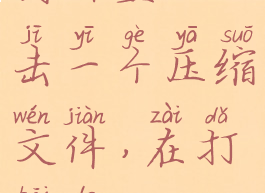 jī yī gè yā suō
击一个压缩
wén jiàn zài dǎ
文件，在打